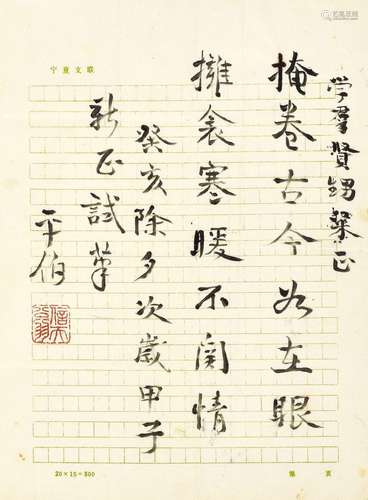 宁夏文联
学羣賢甥粲正
掩卷古今如在眼
擁衾寒暖不関情
癸亥除夕次歲甲子
新正試筆
平伯
20×15=300
第 页